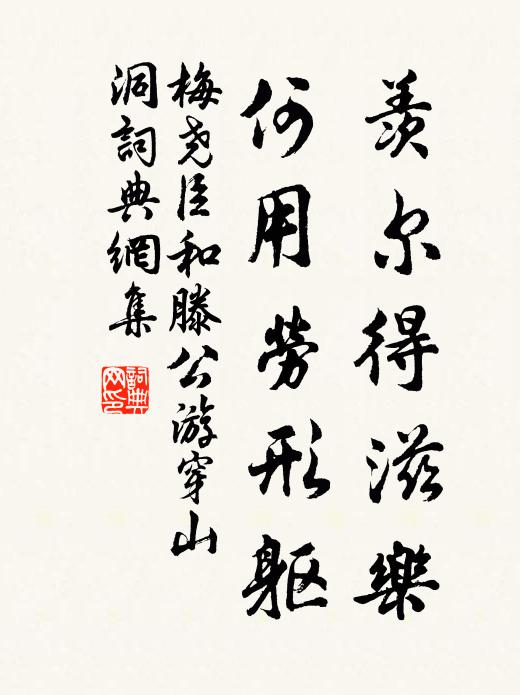 羨尔得滋樂
何用勞形軀
梅尧臣和滕公游穿山
洞詞典網集
詞典
网印